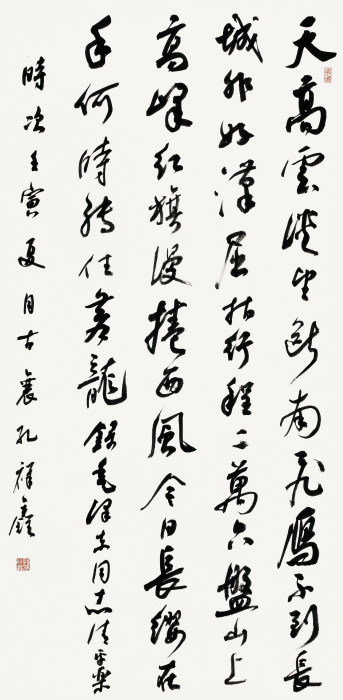 天高雲淡望斷南飛鴈不到長
城非好漢屈指行程二萬六盤山上
高峰紅旗漫捲西風今日長纓在
手何時縛住蒼龍錄毛澤東同志清平樂
時次壬寅夏月古襄孔祥鑫